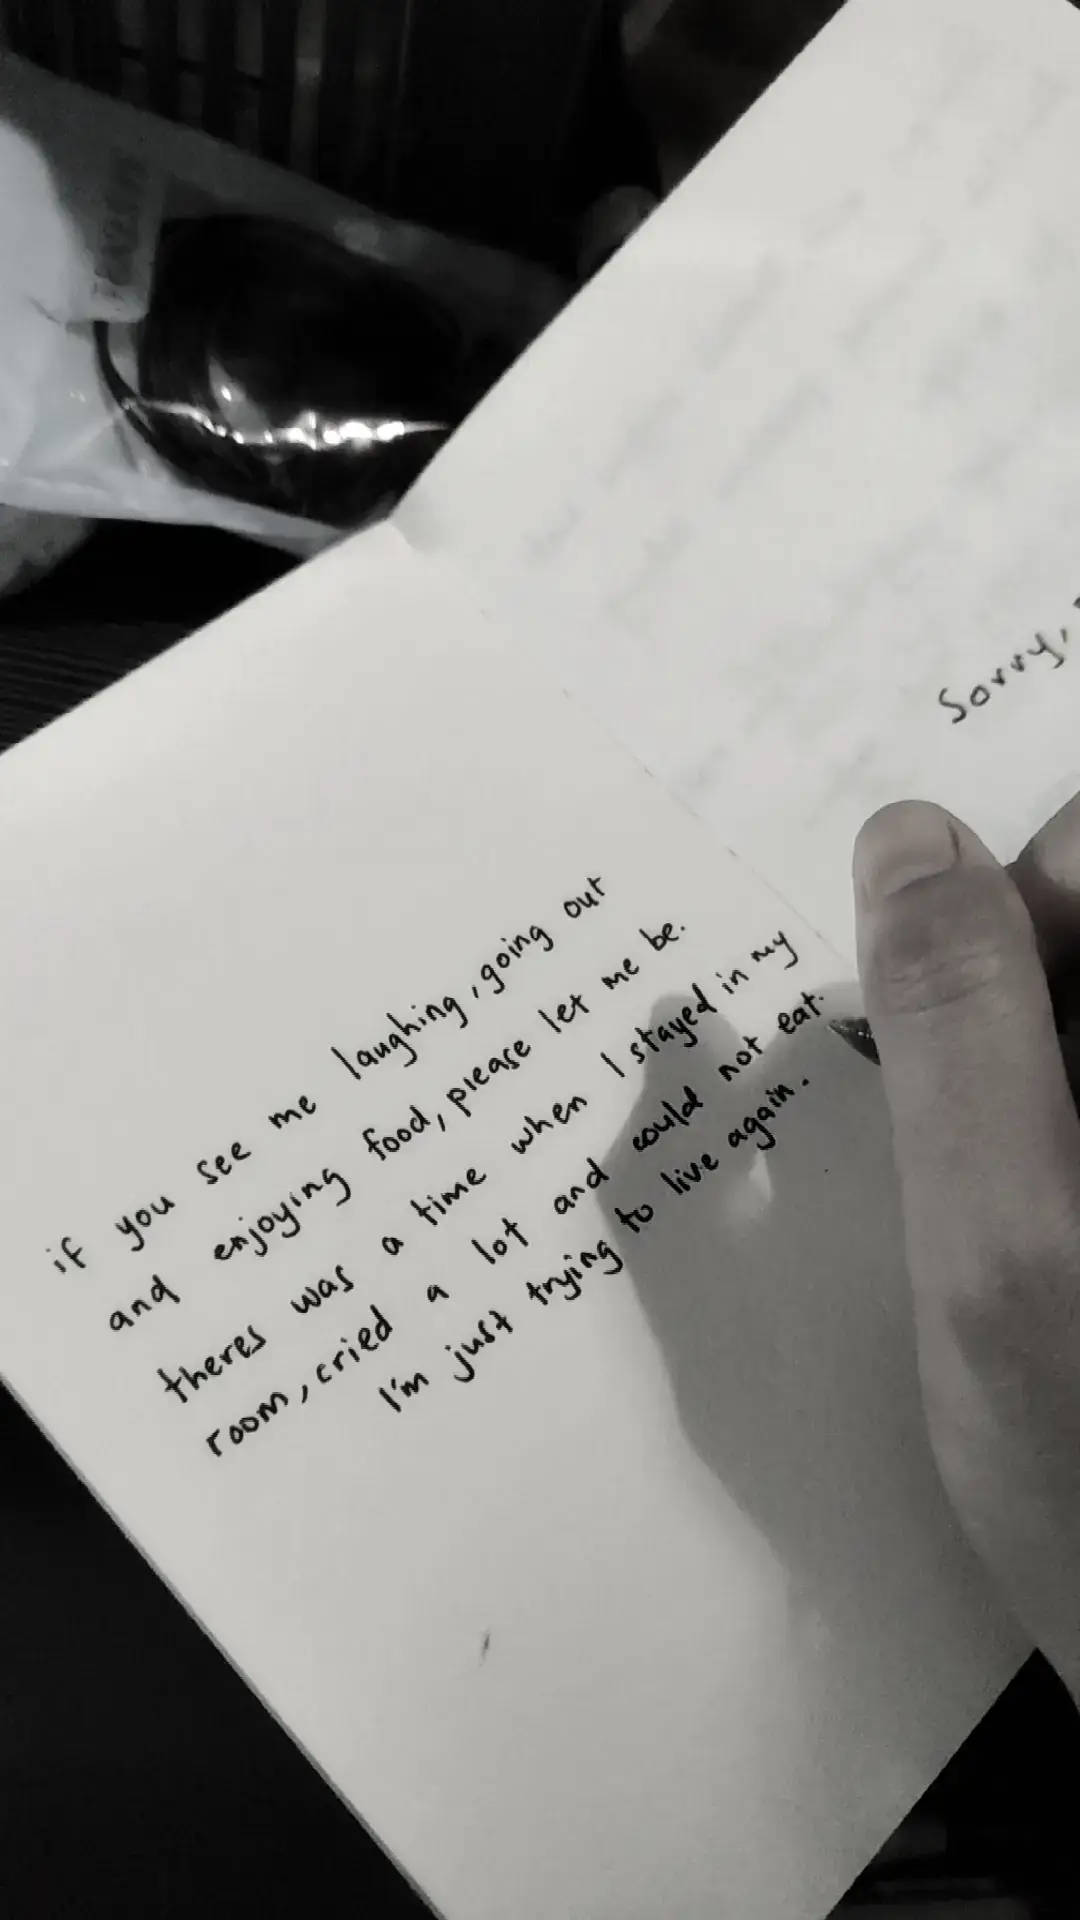 if you see me laughing, going out
and enjoying food, please let me be.
theres was a time when I stayed in my
room, cried a lot and could not eat.
I'm just trying to live again.
Sorry,